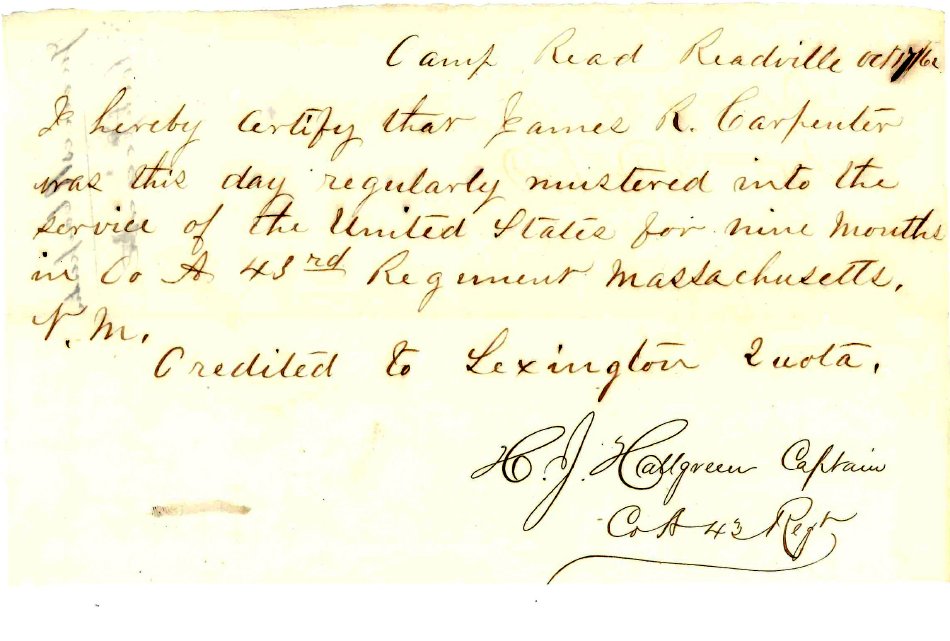 Camp Read Readville Oct 17/62
I hereby certify that James R. Carpenter
was this day regularly mustered into the
service of the United States for nine months
in Co A 43rd Regiment Massachusetts.
V. M.
Credited to Lexington Quota.
H. J. Hallgreen Captain
Co A 43 Regt